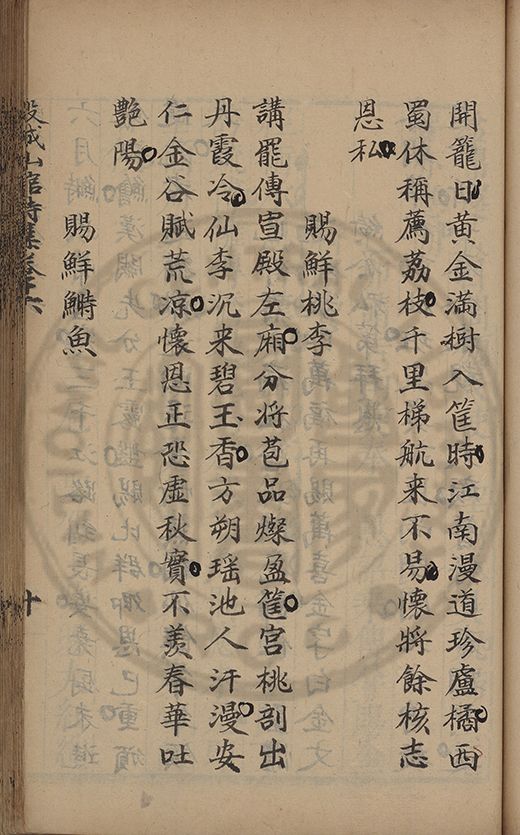 開籠日黄金滿樹入筐時江南漫道珍盧橘西
蜀休稱薦荔枝千里梯航来不易懷將餘核志
恩私
賜鮮桃李
講罷傳宣殿左廂分將苞品燦盈筐宫桃剖出
丹霞冷仙李沉来碧玉香方朔瑶池人汗漫安
仁金谷賦荒凉懷恩正恐虚秋實不羡春華吐
艷陽
賜鮮鰣魚
榖城山館詩集卷十六
十